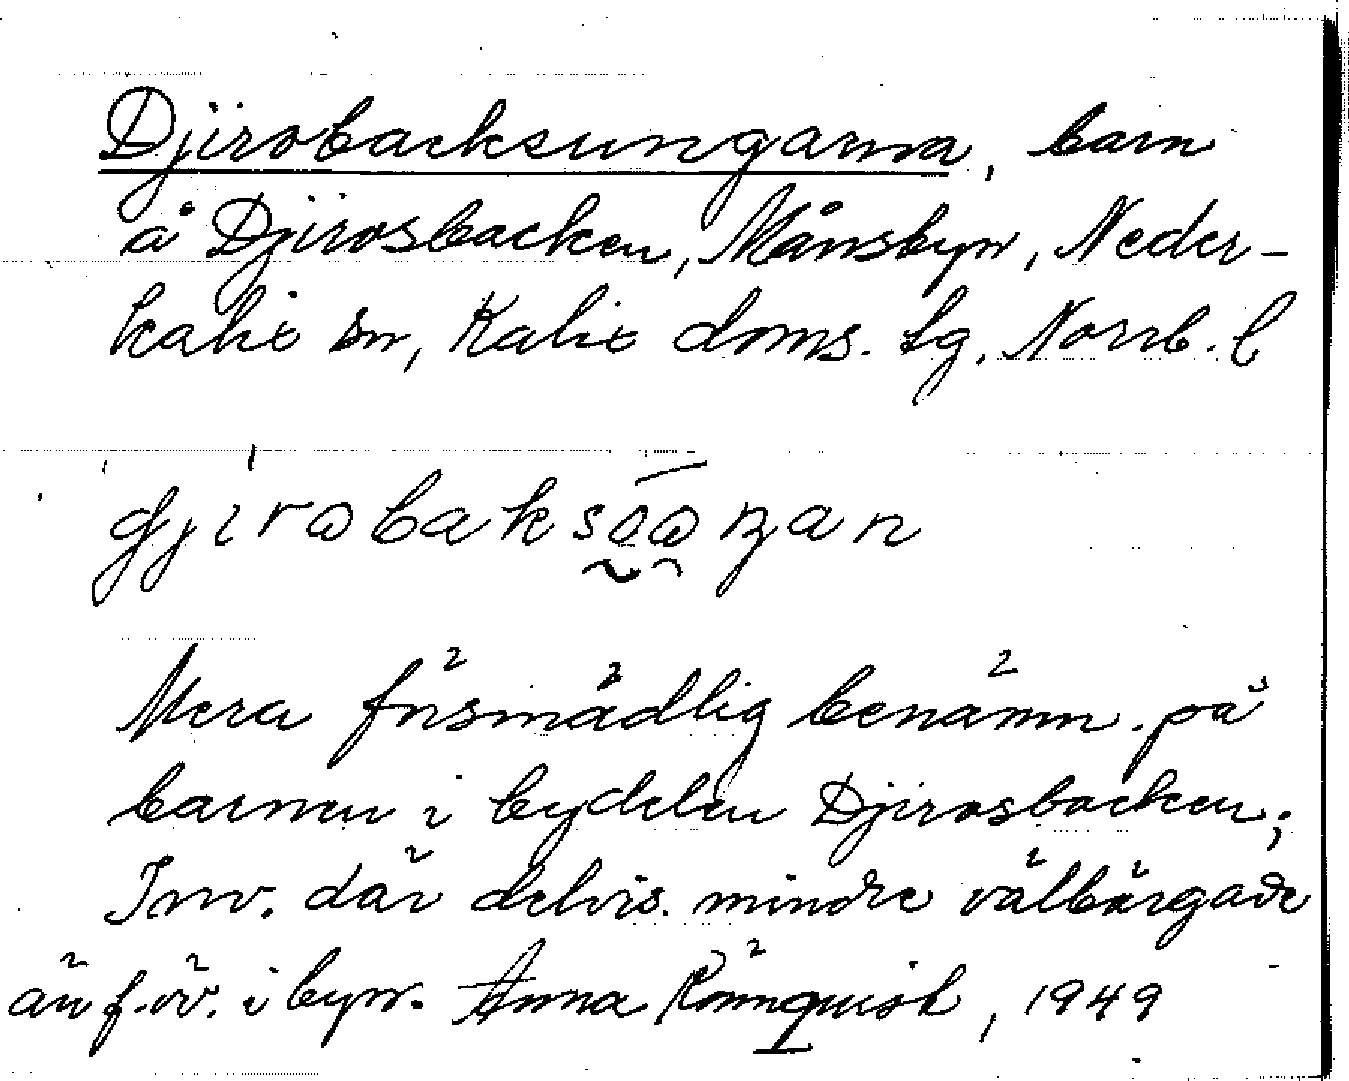 Djirobacksungarna, barn
å Djirosbacken, Månsbyn, Neder-
kalix sn, Kalix doms. tg, Norrb. l
Mera försmädlig benämn. på
barnen i bydelen Djirosbacken;
Inv. där delvis. mindre välbärgade
än f. öv. i byn. Anna Rönnquist, 1949